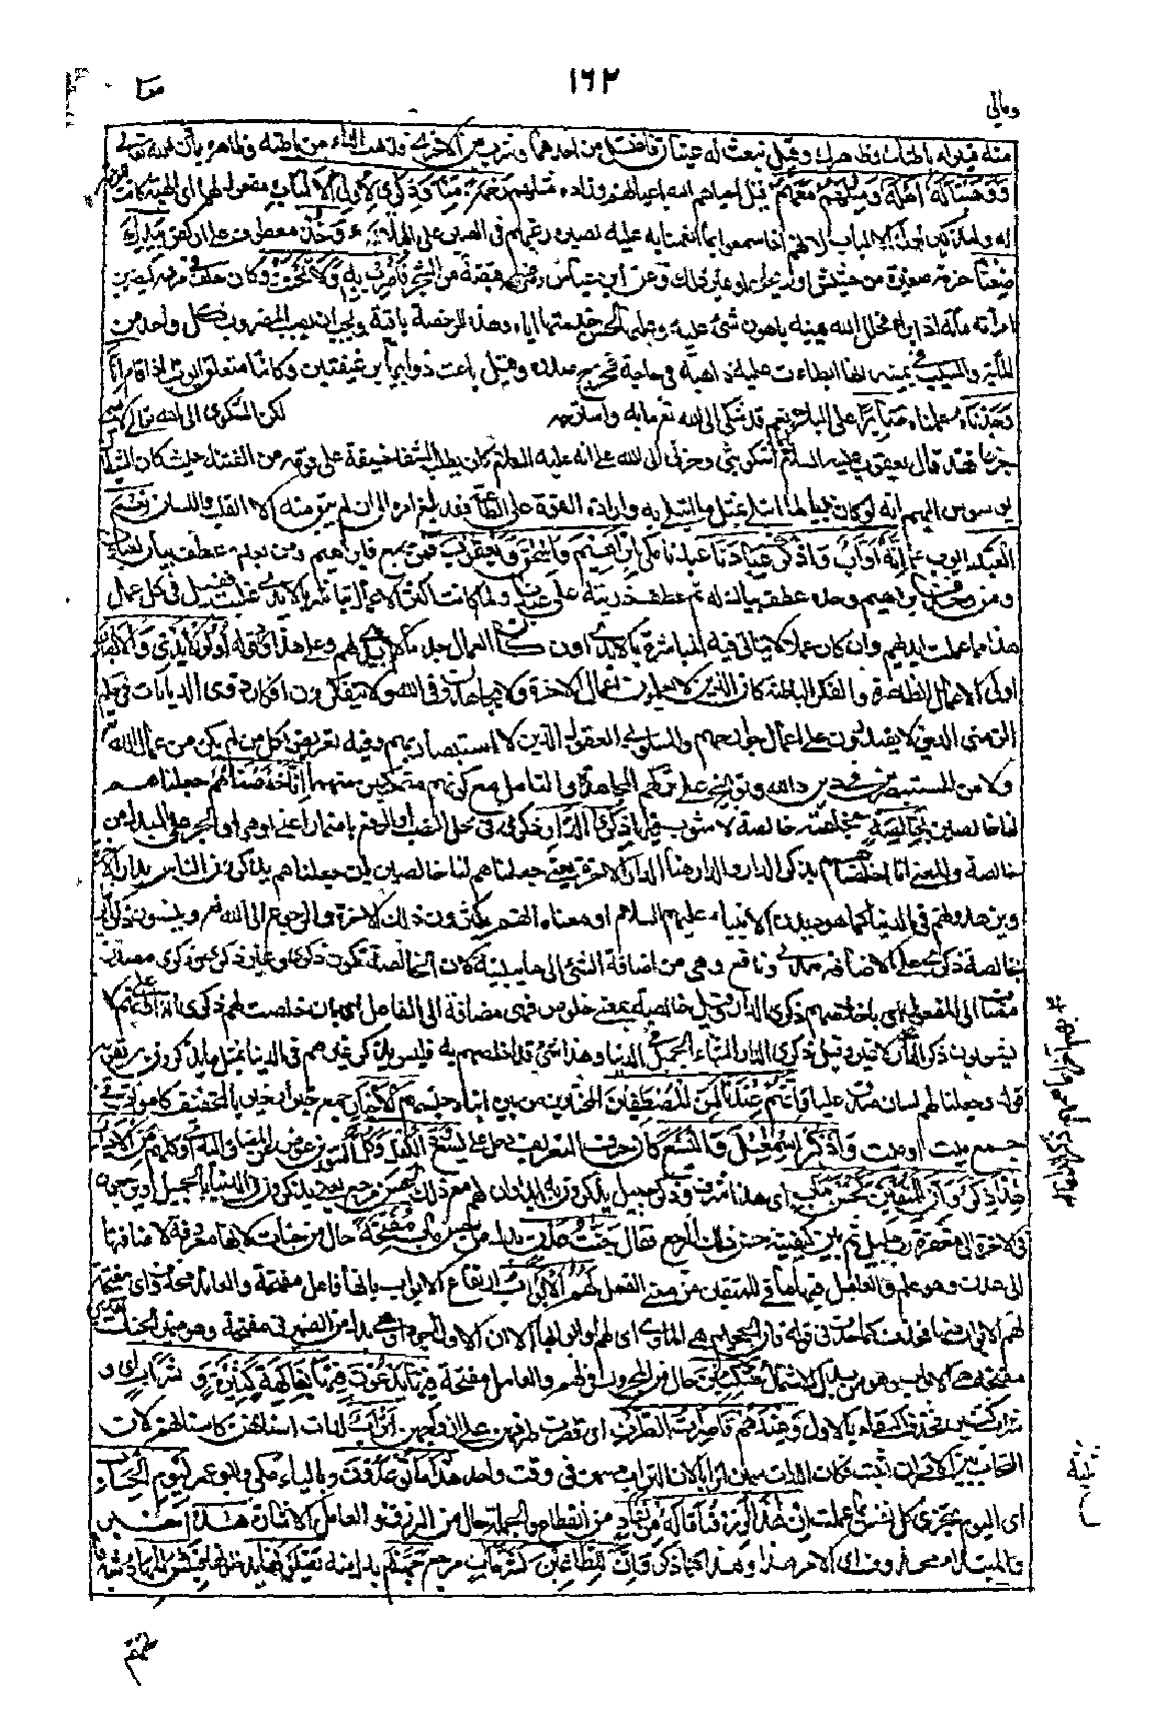 ١٦٢
ومالي
منه فيبرأ باطنك وظاهرك وقيل نبعت له عينان فاغتسل من احدهما وشرب من الاخرى فذهب الداء من باطنه وظاهره باذن الله تعالى
وَوَهَبْنَا لَهُ أَهْلَهُ وَمِثْلَهُم مَّعَهُمْ قيل احياهم الله باعيانهم وزاده مثلهم رَحْمَةً مِّنَّا وَذِكْرَىٰ لِأُولِي الْأَلْبَابِ مفعول لهما اى الهبة كانت
له ولتذكير اولى الالباب لانهم اذا سمعوا بما انعمنا به عليه لصبره رغبهم فى الصبر على البلاء وَخُذْ معطوف على اركض بِيَدِكَ
ضِغْثًا حزمة صغيرة من حشيش او ريحان او غير ذلك وعن ابن عباس رض قبضة من الشجر فَاضْرِب بِّهِ وَلَا تَحْنَثْ وكان حلف فى مرضه ليضربن
امرأته مائة اذا برأ فحلل الله يمينه باهون شئ عليه وعليها لحسن خدمتها اياه وهذه الرخصة باقية ويجب ان يصيب المضروب كل واحد من
المائة والسبب فى يمينه انها ابطأت عليه ذاهبة فى حاجة فحرج صدره وقيل باعت ذوابتها برغيفين وكانتا متعلق ايوب اذا قام إِنَّا
وَجَدْنَاهُ علمناه صَابِرًا على البلاء نعم قد شكى الى الله تعم ما به واسترحمه لكن الشكوى الى الله تعالى لا تسمى
جزعا فقد قال يعقوب عليه السلام انما اشكو بثى وحزنى الى الله على انه عليه السلام كان يطلب الشفاء خيفة على قومه من الفتنة حيث كان الشيطان
يوسوس اليهم انه لو كان نبيا لما ابتلى بمثل ما ابتلى به وارادة القوة على الطاعة فقد بلغ امره الى ان لم يبق منه الا القلب واللسان نِعْمَ
الْعَبْدُ ايوب إِنَّهُ أَوَّابٌ وَاذْكُرْ عِبَادَنَا عبدنا مكى إِبْرَاهِيمَ وَإِسْحَاقَ وَيَعْقُوبَ فمن جمع فابراهيم ومن بعده عطف بيان لعبادنا
ومن وحد فابراهيم وحده عطف بيان له ثم عطف ذريته على عبدنا ولما كانت اكثر الاعمال تباشر بالايدى غلبت فقيل فى كل عمل
هذا مما عملت ايديهم وان كان عملا لا يتاتى فيه المباشرة بالايدى او كان العمال جذما لا ايدى لهم وعلى هذا ورد قوله أُولِي الْأَيْدِي وَالْأَبْصَارِ
اولى الاعمال الظاهرة والفكر الباطنة كان الذين لا يعملون اعمال الاخرة ولا يجاهدون فى الله ولا يتفكرون افكار ذوى الديانات فى حكم
الزمنى الذين لا يقدرون على اعمال جوارحهم والمسلوبى العقول الذين لا استبصار بهم وفيه تعريض بكل من لم يكن من عمال الله
ولا من المستبصرين فى دين الله وتوبيخ على تركهم المجاهدة والتامل مع كونهم متمكنين منهما إِنَّا أَخْلَصْنَاهُم جعلناهم
لنا خالصين بِخَالِصَةٍ بخصلة خالصة لا شوب فيها ذِكْرَى الدَّارِ ذكرى فى محل النصب او الرفع باضمار اعنى او هى او الجر على البدل من
خالصة والمعنى انا اخلصناهم بذكرى الدار والدار هنا الدار الاخرة يعنى جعلناهم لنا خالصين بان جعلناهم يذكرون الناس الدار الاخرة
ويزهدونهم فى الدنيا كما هو ديدن الانبياء عليهم السلام او معناه انهم يكثرون ذكر الاخرة والرجوع الى الله تعم وينسون ذكر الدنيا
بخالصة ذكرى على الاضافة مدنى ونافع وهى من اضافة الشئ الى ما يبينه لان الخالصة تكون ذكرى وغير ذكرى وذكرى مصدر
مضاف الى المفعول اى باخلاصهم ذكرى الدار وقيل خالصة بمعنى خلوص فهى مضافة الى الفاعل اى بان خلصت لهم ذكرى الدار على انهم لا
يشوبون ذكرى الدار بهم اخر وقيل ذكرى الدار الثناء الجميل فى الدنيا وهذا شئ قد اخلصهم به فليس يذكر غيرهم فى الدنيا بمثل ما يذكرون به يقويه
قوله وجعلنا لهم لسان صدق عليا وَإِنَّهُمْ عِندَنَا لَمِنَ الْمُصْطَفَيْنَ المختارين من بين ابناء جنسهم الْأَخْيَارِ جمع خير او خير بالتخفيف كاموات فى
جمع ميت او ميت وَاذْكُرْ إِسْمَاعِيلَ وَالْيَسَعَ كان حرف التعريف دخل على يسع وَذَا الْكِفْلِ وَكُلٌّ التنوين عوض عن المضاف اليه اى وكلهم مِّنَ الْأَخْيَارِ
هَٰذَا ذِكْرٌ وَإِنَّ لِلْمُتَّقِينَ لَحُسْنَ مَآبٍ اى هذا شرف وذكر جميل يذكرون به ابدا وان لهم مع ذلك لحسن مرجع يعنى يذكرون فى الدنيا بالجميل ويرجعون
فى الاخرة الى مغفرة رب جليل ثم بين كيفية حسن ذلك المرجع فقال جَنَّاتِ عَدْنٍ بدل من حسن مآب مُّفَتَّحَةً حال من جنات لانها معرفة لاضافتها
الى عدن وهو علم والعامل فيها ما فى للمتقين من معنى الفعل لَّهُمُ الْأَبْوَابُ ارتفاع الابواب بانها فاعل مفتحة والعائد محذوف اى مفتحة
لهم الابواب منها فحذف كما حذف فى قوله فان الجحيم هى الماوى اى لهم او ابوابها الا ان الاول اجود او هى بدل من الضمير فى مفتحة وهو ضمير الجنات تقديره
مفتحة هى الابواب وهو من بدل الاشتمال مُتَّكِئِينَ حال من المجرور فى لهم والعامل مفتحة فِيهَا يَدْعُونَ فِيهَا بِفَاكِهَةٍ كَثِيرَةٍ وَشَرَابٍ اى و
شراب كثير فحذف اكتفاء بالاول وَعِندَهُمْ قَاصِرَاتُ الطَّرْفِ اى قصرن طرفهن على ازواجهن أَتْرَابٌ لدات اسنانهن كاسنانهم لان
التحاب بين الاقران اثبت وكان اللدات سمين اترابا لان التراب مسهن فى وقت واحد هَٰذَا مَا تُوعَدُونَ وبالياء مكى وابو عمرو لِيَوْمِ الْحِسَابِ
اى ليوم تجزى كل نفس بما عملت إِنَّ هَٰذَا لَرِزْقُنَا مَا لَهُ مِن نَّفَادٍ من انقطاع والجملة حال من الرزق والعامل الاشارة هَٰذَا خبر
والمبتدأ محذوف اى الامر هذا او هذا كما ذكر وَإِنَّ لِلطَّاغِينَ لَشَرَّ مَآبٍ مرجع جَهَنَّمَ بدل منه يَصْلَوْنَهَا يدخلونها فَبِئْسَ الْمِهَادُ شبه